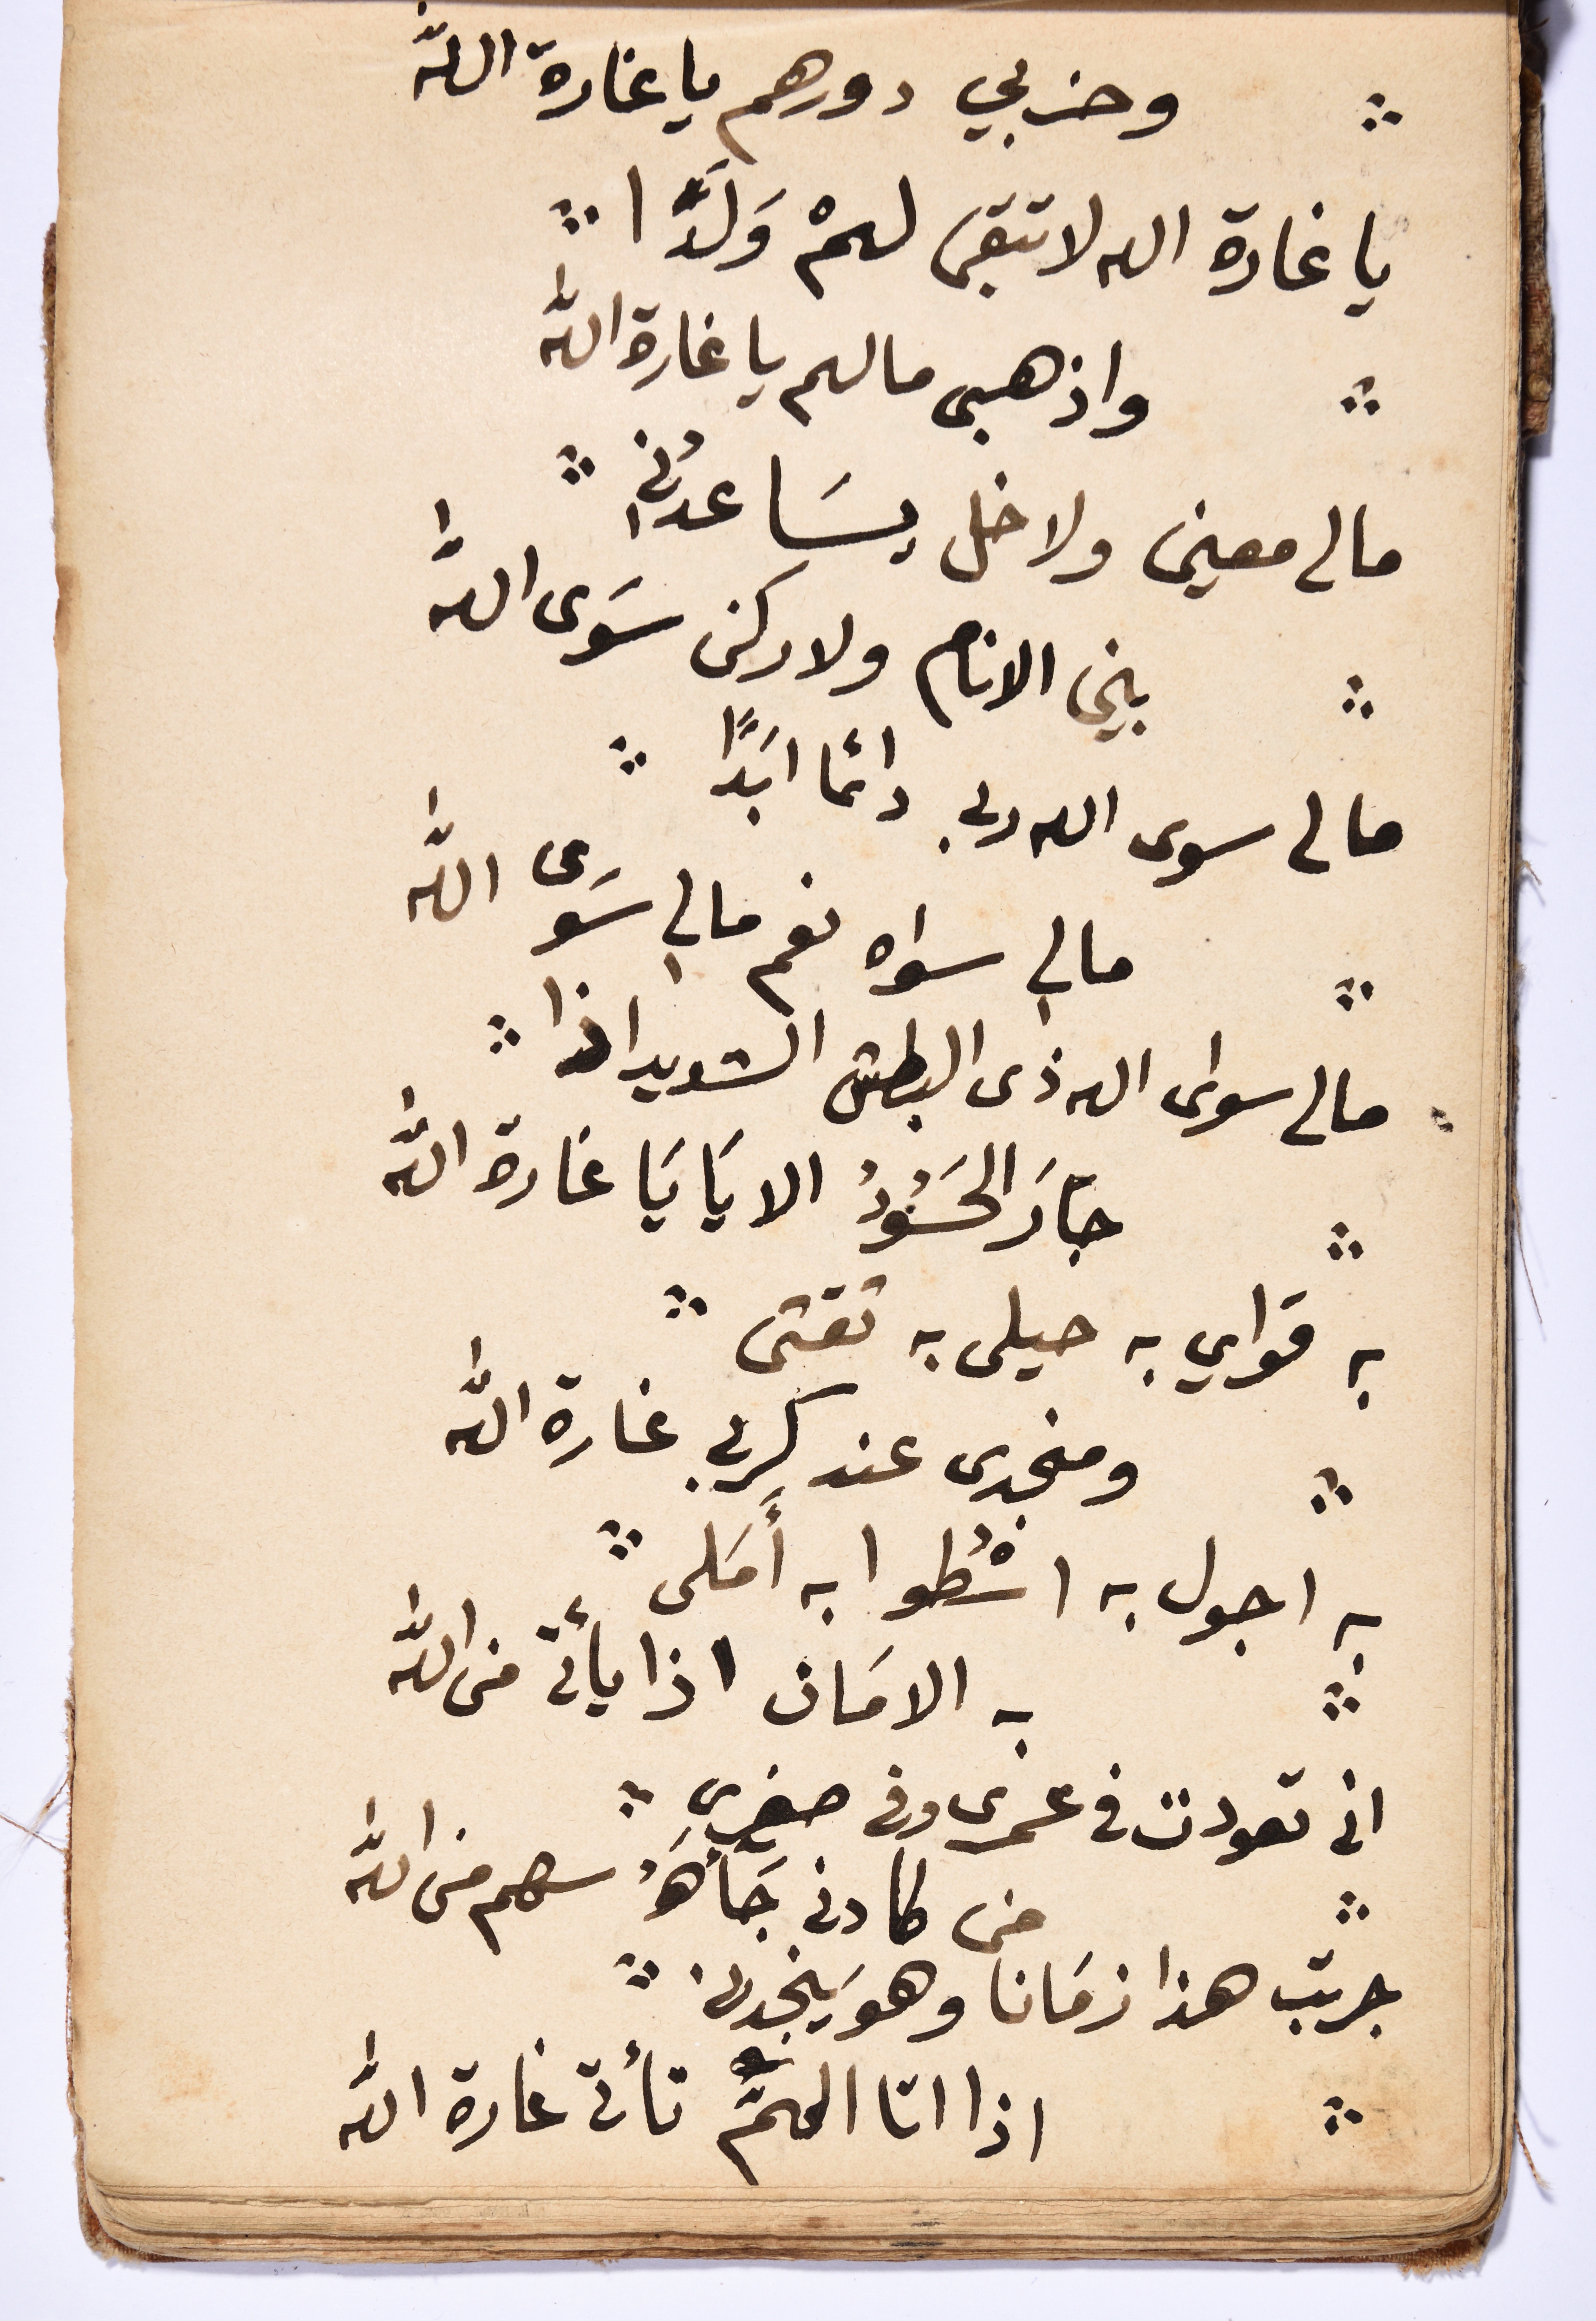 وخربي دورهم يا غارة الله
يا غارة الله لا تبقى لهمْ وَلَدًا
واذهبى مالهم يا غارة الله
مالى معين ولا خل يسَاعدُني
بين الانام ولا ركن سَوى الله
مالى سوى الله ربى دائما ابَدًا
مالي سواه نعم مالي سَوى الله
مالى سواى الله ذى البطش الشديد اذا
جَارَ الحَسُودُ الا يَا يَا غارة الله
به قواي به حيلى به ثقتى
ومنجدى عند كربى غارة الله
به اجول به اسْطُوا به أَمَلى
به الامَان اذا يأتى من الله
انى تعودت فى عمرى وفى صغري
من كادنى جَأهَُ سهم من الله
جربت هذا زمَانا وهو يَنجدنى
اذا اتا الهمُّ تأتى غارة الله